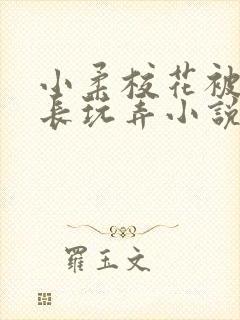 小柔校花被
长玩弄小說
羅玉文